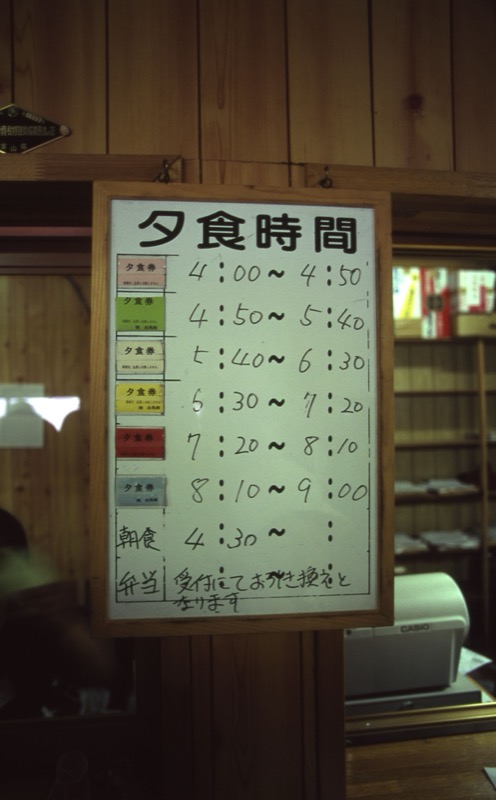 夕食時間
夕食券 4:00~4:50
夕食券 4:50~5:40
夕食券 5:40~6:30
夕食券 6:30~7:20
夕食券 7:20~8:10
夕食券 8:10~9:00
朝食 4:30~ :
弁当 受付にてお引き換えと
なります
CASIO